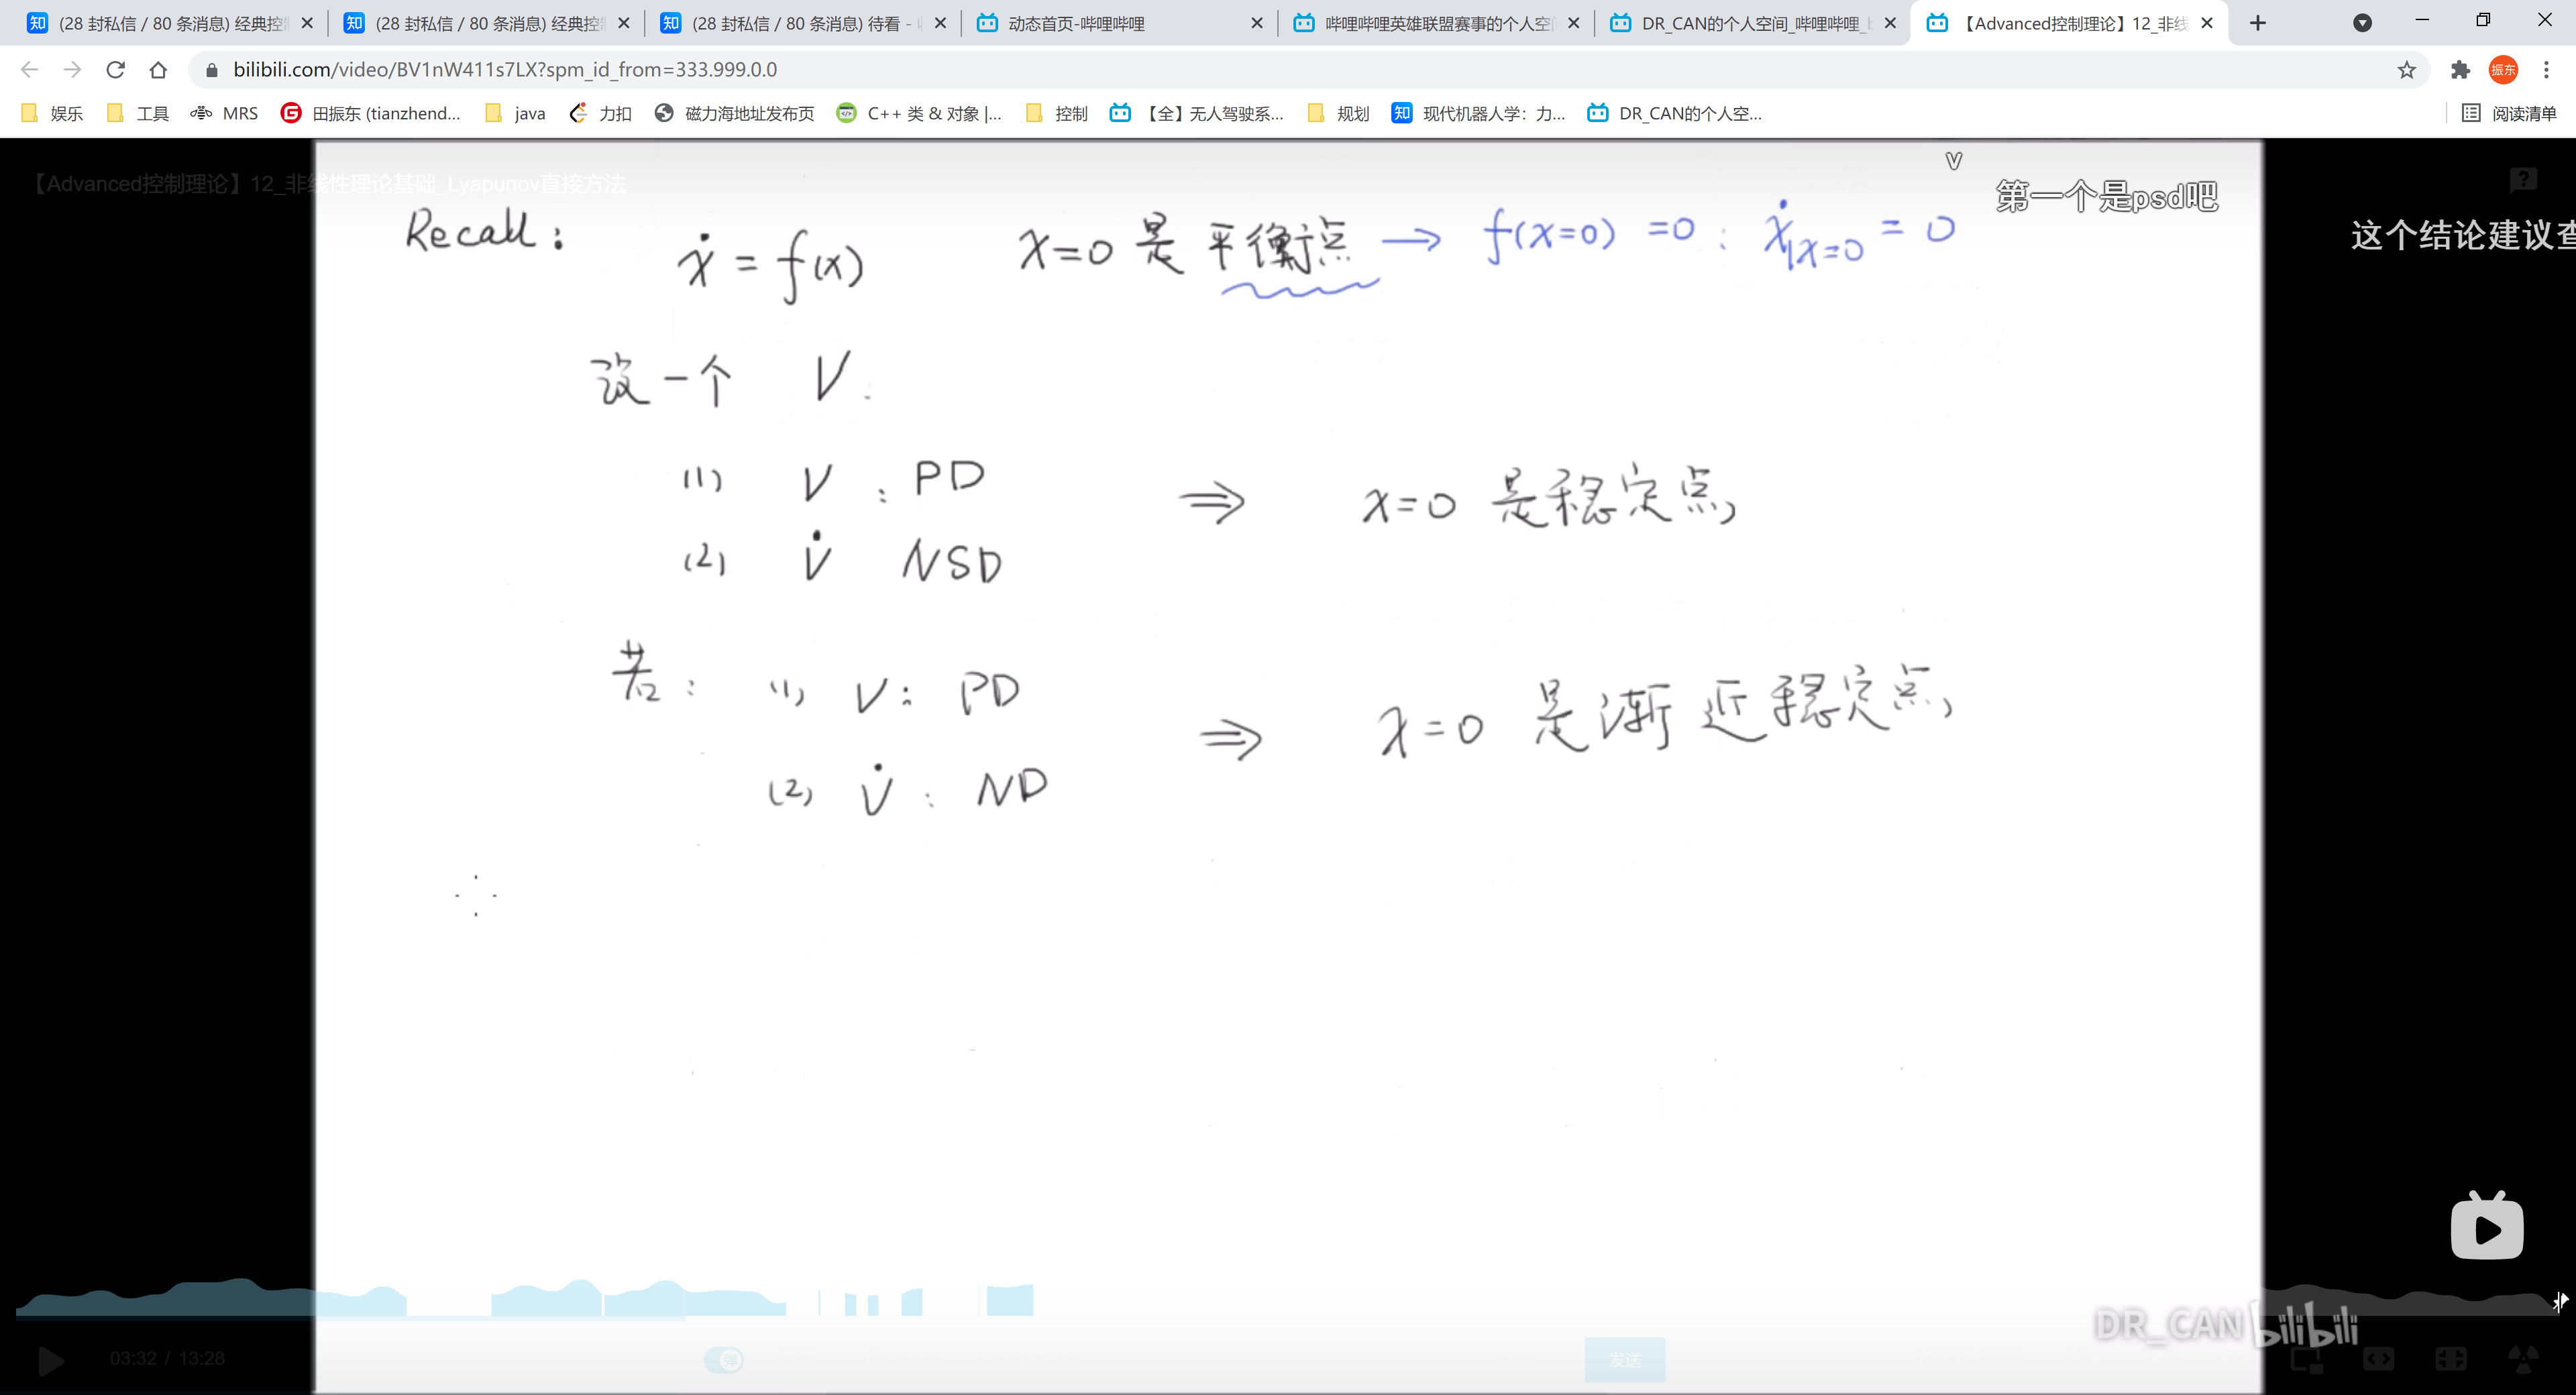 (28 封私信 / 80 条消息) 经典控
(28 封私信 / 80 条消息) 经典控
(28 封私信 / 80 条消息) 待看 -
动态首页-哔哩哔哩
哔哩哔哩英雄联盟赛事的个人空
DR_CAN的个人空间_哔哩哔哩_
【Advanced控制理论】12_非线
bilibili.com/video/BV1nW411s7LX?spm_id_from=333.999.0.0
振东
娱乐
工具
MRS
田振东 (tianzhend...
java
力扣
磁力海地址发布页
C++ 类 & 对象 |...
控制
【全】无人驾驶系...
规划
现代机器人学：力...
DR_CAN的个人空...
阅读清单
【Advanced控制理论】12_非线性理论基础_Lyapunov直接方法
V
第一个是psd吧
这个结论建议查
Recall: ẋ = f(x) x=0 是 平衡点 → f(x=0) =0 : ẋ|x=0 = 0
设一个 V:
(1) V : PD ⇒ x=0 是稳定点
(2) V̇ NSD
若: (1) V: PD ⇒ x=0 是渐近稳定点
(2) V̇ : ND
DR_CAN bilibili
03:32 / 13:28
弹
发送